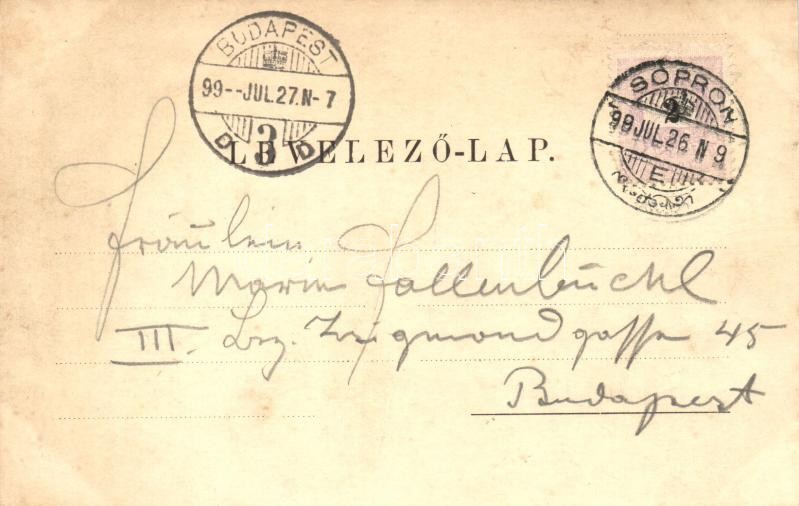 BUDAPEST
99--JUL.27.N-7
D 3 D
SOPRON
2
99 JUL 26 N 9
E
LEVELEZŐ-LAP.
Fräulein
Marie Fallenbüchl
III. Bez. Zsigmondgasse 45
Budapest